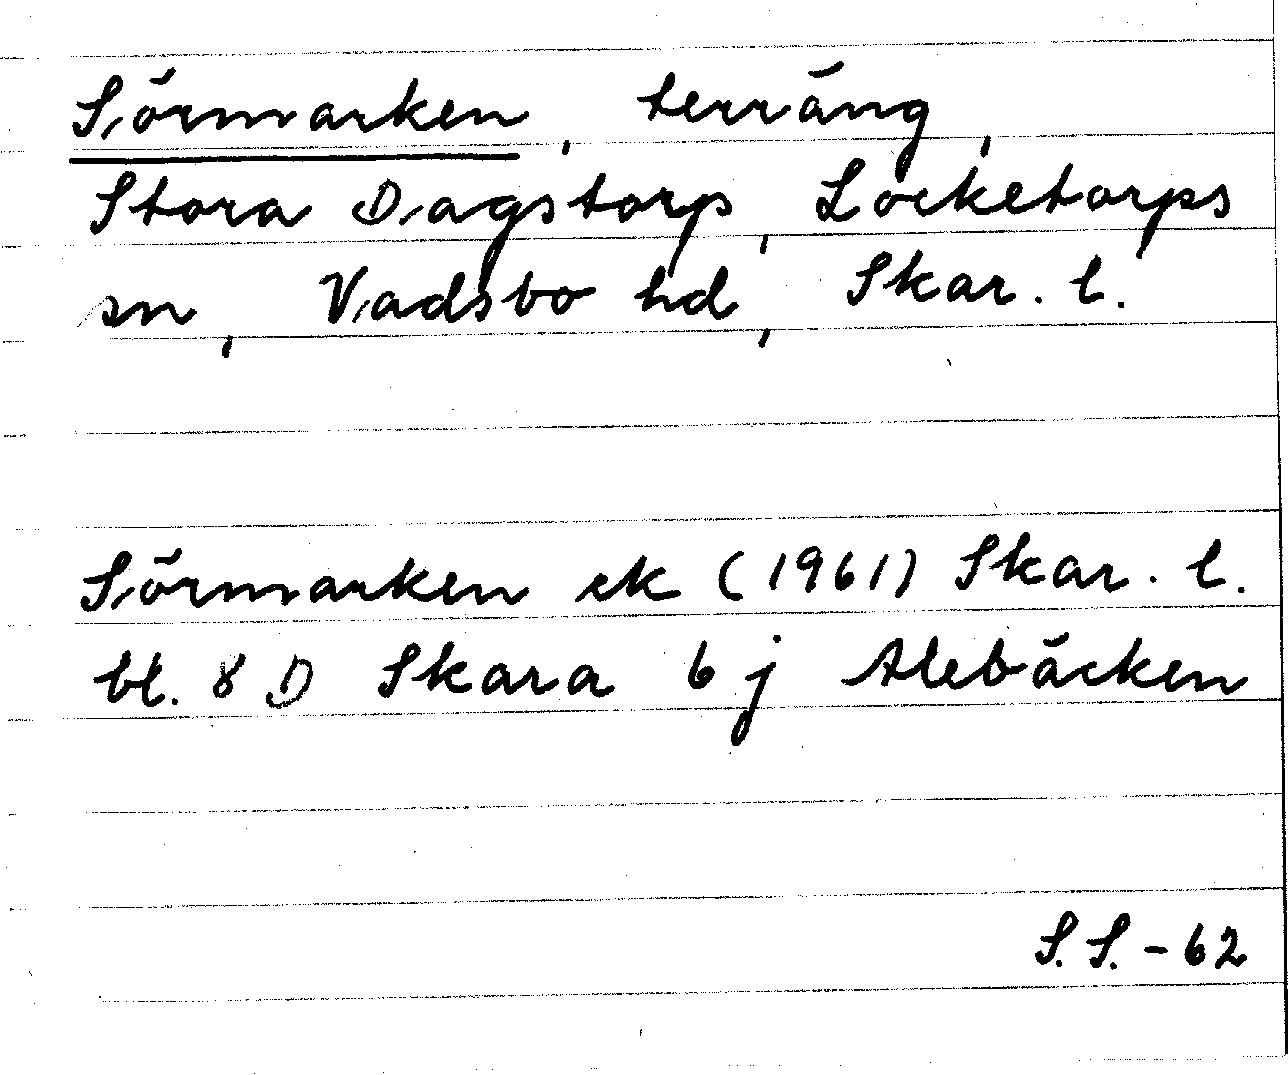 Sörmarken, terräng,
Stora Dagstorp, Locketorps
sn, Vadsbo hd, Skar. l.
Sörmarken ek (1961) Skar. l.
bl. 8 D Skara 6 j Alebäcken
S. S. - 62